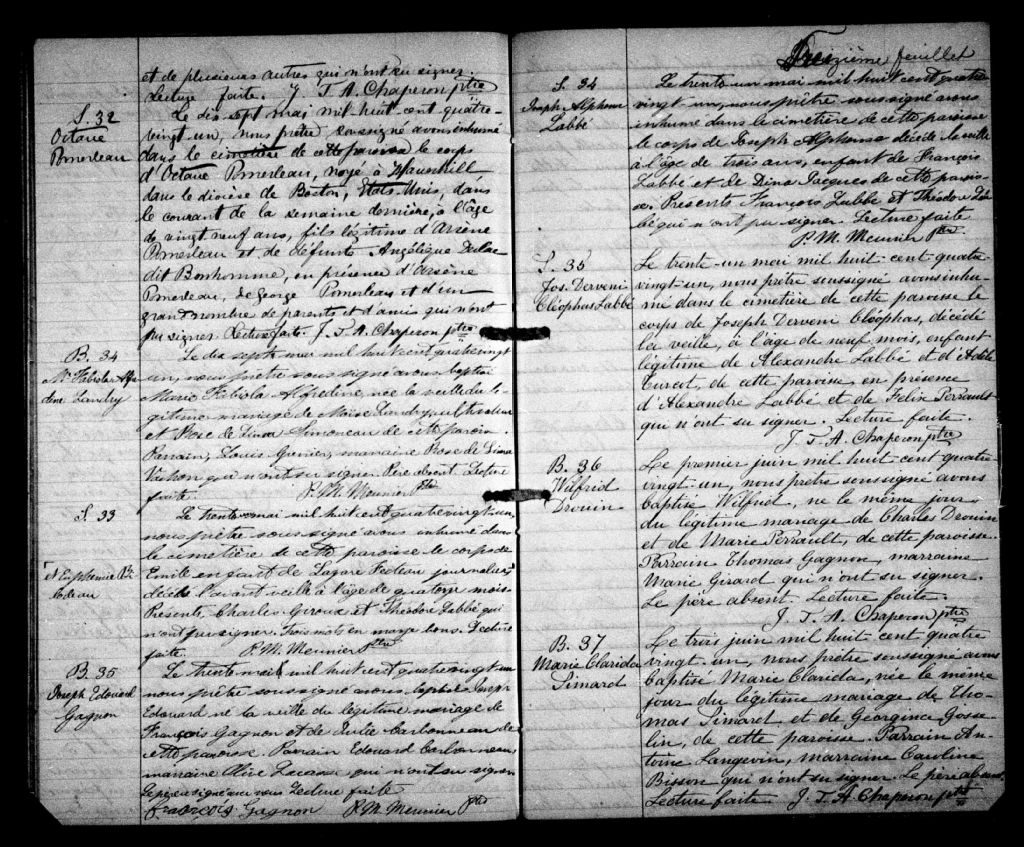 et de plusieurs autres qui n'ont su signer.
Lecture faite. J. T. A. Chaperon ptre
S. 32
Octave
Pomerleau
Le dix sept mai mil huit cent quatre-
vingt-un, nous prêtre soussigné avons inhumé
dans le cimetière de cette paroisse le corps
d'Octave Pomerleau, noyé à
dans le diocèse de Boston, États-Unis, dans
le courant de la semaine dernière, à l'âge
de vingt-neuf ans, fils légitime d'Arsène
Pomerleau et de défunte Angélique
dit Bonhomme, en présence d'Arsène
Pomerleau, de George Pomerleau et d'un
grand nombre de parents et d'amis qui n'ont
pu signer. Lecture faite. J. T. A. Chaperon ptre
B. 34
Mie Fabiola Alfre
dine Landry
Le dix sept mai mil huit cent quatre vingt
un, nous prêtre soussigné avons baptisé
Marie Fabiola Alfredine, née la veille du lé-
gitime mariage de Moïse Landry
et Rose de Lima Simoneau de cette paroisse.
Parrain, Louis Grenier, marraine Rose de Lima
Vachon qui n'ont su signer. Père absent. Lecture
faite. P. M. Meunier Ptre
S. 33
et Euphemie Bi-
lodeau
Le trente mai mil huit cent quatre vingt un,
nous prêtre soussigné avons inhumé dans
le cimetière de cette paroisse le corps de
Emile enfant de Lazare Fecteau journalier,
décédé l'avant veille à l'âge de quatorze mois.
Présents, Charles Giroux et Théodore Labbé qui
n'ont pu signer. Trois mots en marge bons. Lecture
faite. P. M. Meunier Ptre
B. 35
Joseph Edouard
Gagnon
Le trente mai mil huit cent quatre vingt un
nous prêtre soussigné avons baptisé Joseph
Edouard né la veille du légitime mariage de
François Gagnon et de Julie Carbonneau de
cette paroisse. Parrain Edouard Carbonneau,
marraine Olive qui n'ont su signer
le père signe avec nous Lecture faite
François Gagnon P. M. Meunier Ptre
Treizième feuillet
S. 34
Joseph Alphonse
Labbé
Le trente un mai mil huit cent quatre
vingt un, nous prêtre soussigné avons
inhumé dans le cimetière de cette paroisse
le corps de Joseph Alphonse décédé la veille
à l'âge de trois ans, enfant de François
Labbé et de Dina Jacques de cette parois-
se. Présents François Labbé et Théodore Lab-
bé qui n'ont pu signer. Lecture faite
P. M. Meunier Ptre
S. 35
Jos. Derveni
Cléophas Labbé
Le trente-un mai mil huit-cent-quatre-
vingt-un, nous prêtre soussigné avons inhu-
mé dans le cimetière de cette paroisse le
corps de Joseph Derveni Cléophas, décédé
la veille, à l'âge de neuf mois, enfant
légitime de Alexandre Labbé et d'Adèle
Turcot, de cette paroisse, en présence
d'Alexandre Labbé et de Felix Perrault
qui n'ont su signer. Lecture faite.
J. T. A. Chaperon ptre
B. 36
Wilfrid
Drouin
Le premier juin mil huit cent quatre-
vingt-un, nous prêtre soussigné avons
baptisé Wilfrid, né le même jour
du légitime mariage de Charles Drouin
et de Marie Perrault, de cette paroisse.
Parrain Thomas Gagnon, marraine
Marie Girard qui n'ont su signer.
Le père absent. Lecture faite.
J. T. A. Chaperon ptre
B. 37
Marie Clarida
Simard
Le trois juin mil huit cent quatre
vingt-un, nous prêtre soussigné avons
baptisé Marie Clarida, née le même
jour du légitime mariage de Tho-
mas Simard et de Georgina Gosse-
lin, de cette paroisse. Parrain An-
toine Langevin, marraine Caroline
Bisson qui n'ont su signer. Le père absent.
Lecture faite J. T. A. Chaperon ptre